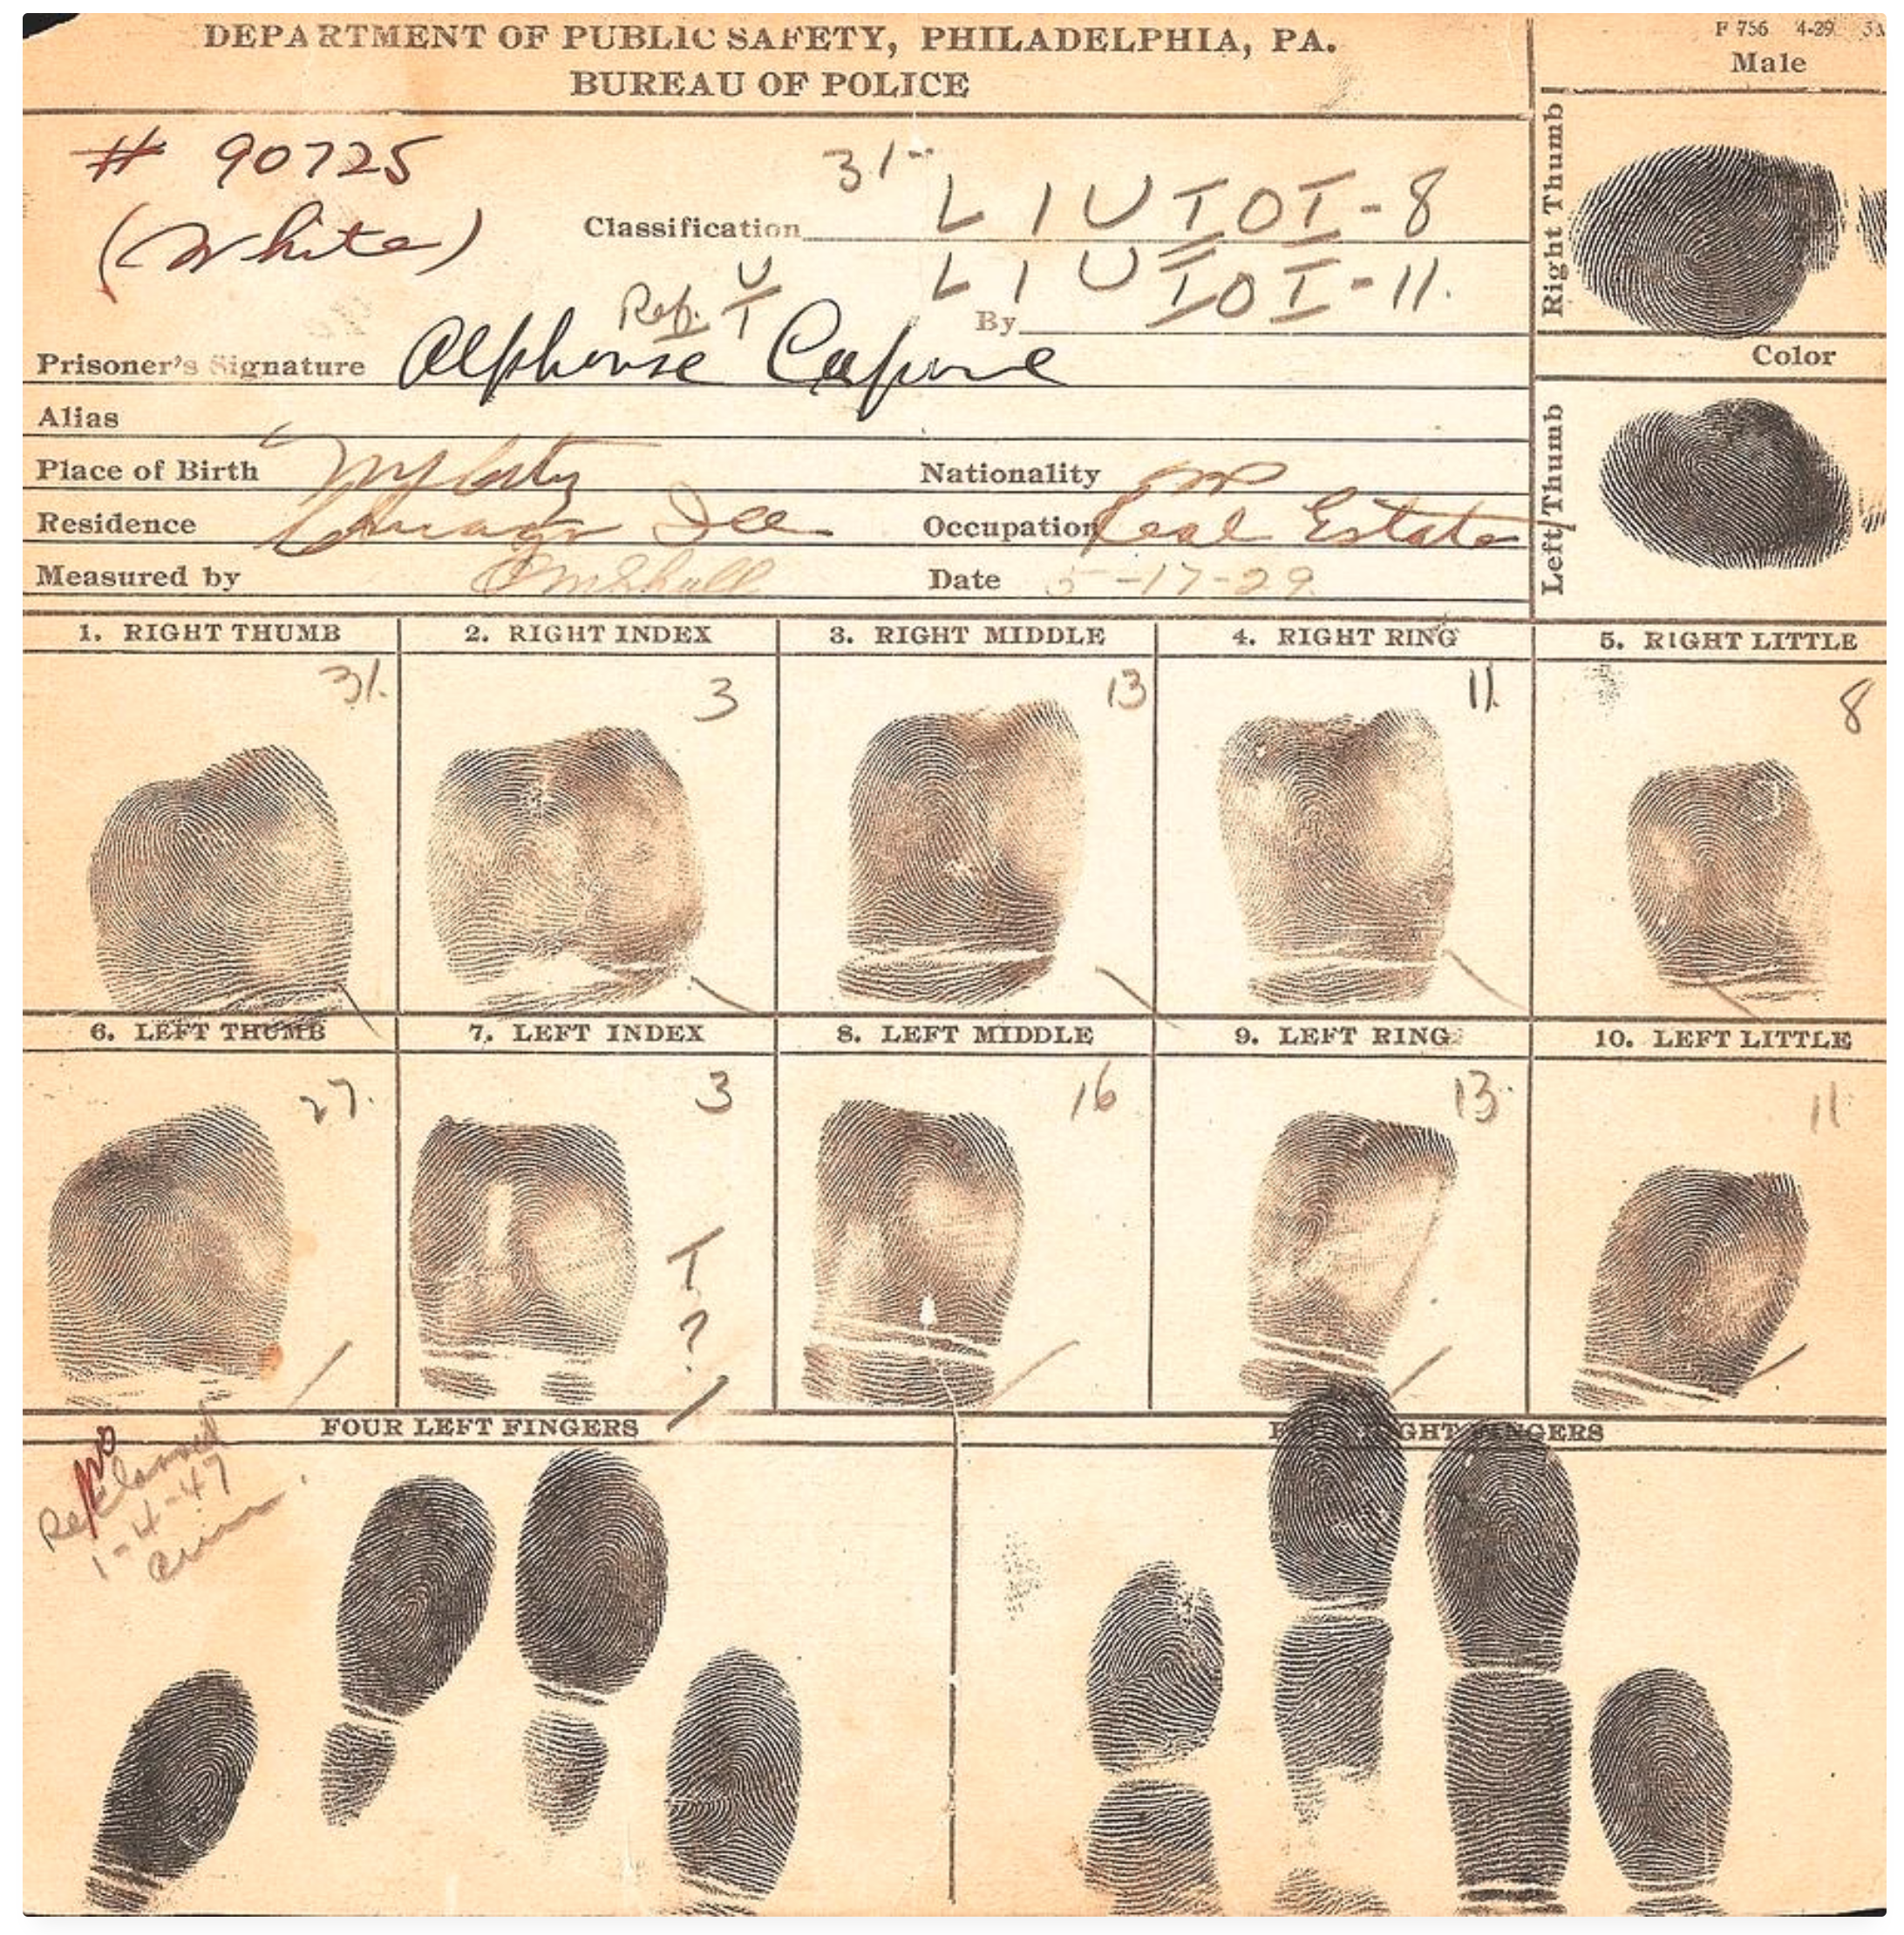 F 756 4-29
DEPARTMENT OF PUBLIC SAFETY, PHILADELPHIA, PA.
BUREAU OF POLICE
Male
# 90725
(White)
31
Classification L 1 U I O I - 8
L 1 U I O I - 11.
Ref. U
T
By
Prisoner's Signature Alphonse Capone
Alias
Place of Birth NY City
Nationality
Residence Chicago Ill
Occupation Real Estate
Measured by
Date 5-17-29
Right Thumb
Color
Left Thumb
1. RIGHT THUMB 2. RIGHT INDEX 3. RIGHT MIDDLE 4. RIGHT RING 5. RIGHT LITTLE
31. 3 13 11. 8
6. LEFT THUMB 7. LEFT INDEX 8. LEFT MIDDLE 9. LEFT RING 10. LEFT LITTLE
27. 3 16 13 11
T
?
FOUR LEFT FINGERS
1-4-47